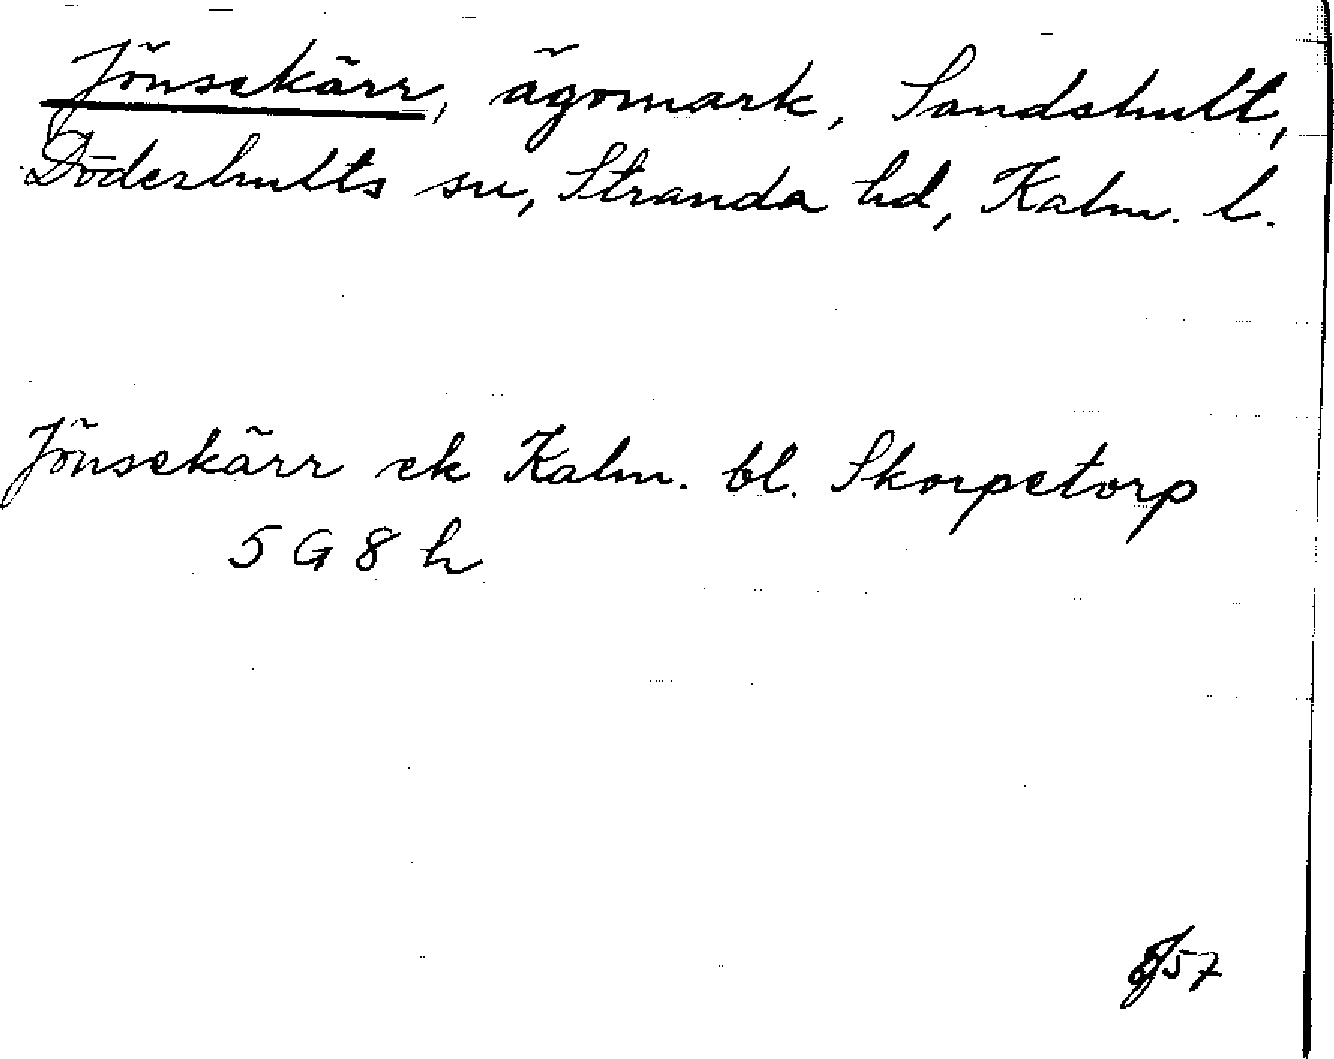 Jönsekärr, ägomark, Sandshult,
Döderhults sn, Stranda hd, Kalm. l.
Jönsekärr ek Kalm. bl. Skorpetorp
5 G 8 h
57